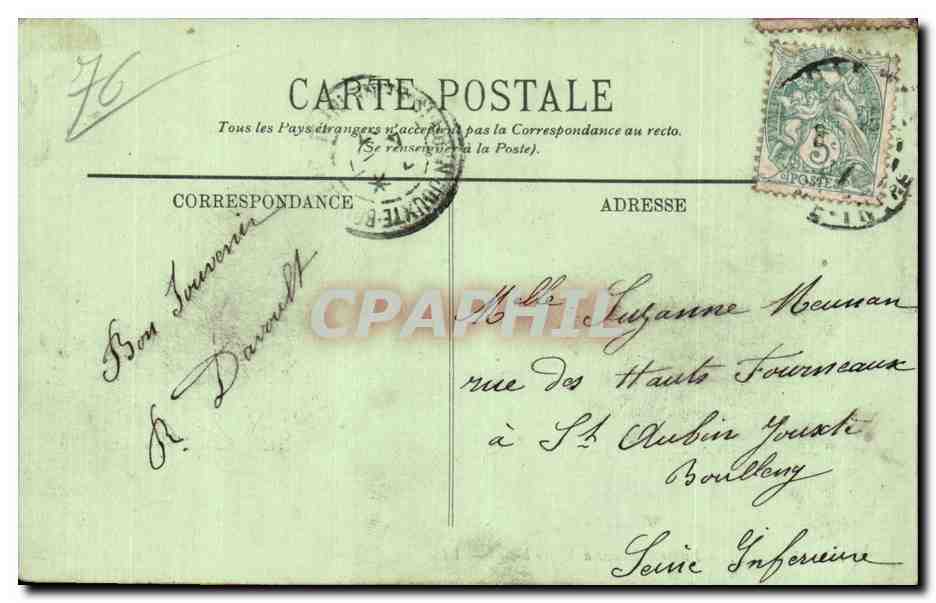 76
CARTE POSTALE
Tous les Pays étrangers n'acceptent pas la Correspondance au recto.
(Se renseigner à la Poste).
CORRESPONDANCE
ADRESSE
Bon Souvenir
R. Davoult
5c
POSTES
CPAPHIL
Melle Suzanne Meunan
rue des Hauts Fourneaux
à St Aubin Jouxte
Boulleng
Seine Inferieure